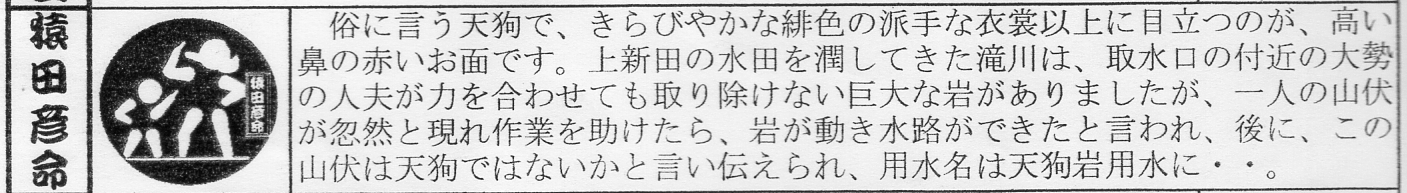 猿田彦命
猿田彦命
俗に言う天狗で、きらびやかな緋色の派手な衣裳以上に目立つのが、高い
鼻の赤いお面です。上新田の水田を潤してきた滝川は、取水口の付近の大勢
の人夫が力を合わせても取り除けない巨大な岩がありましたが、一人の山伏
が忽然と現れ作業を助けたら、岩が動き水路ができたと言われ、後に、この
山伏は天狗ではないかと言い伝えられ、用水名は天狗岩用水に・・。